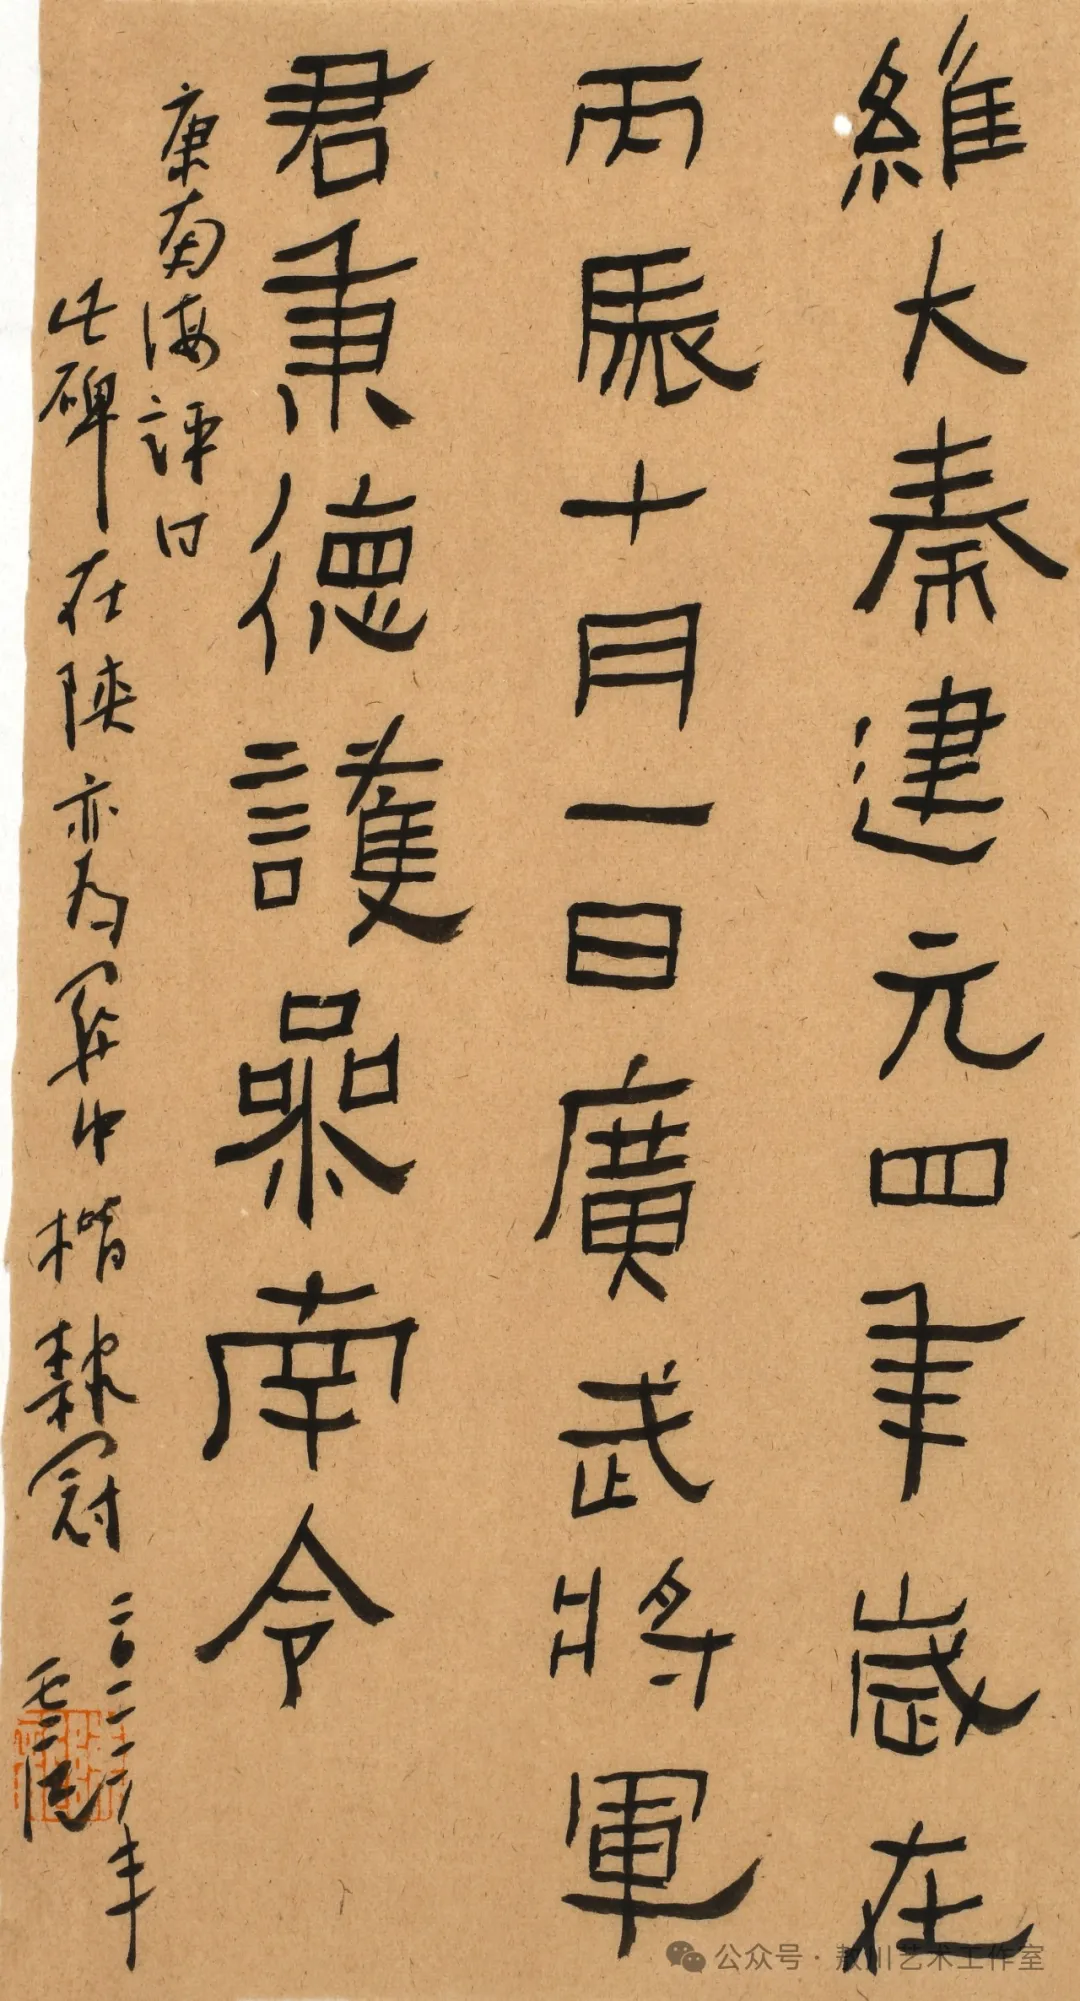 維大秦建元四年歲在
丙辰十月一日廣武將軍
君秉德護喿南令
康南海評曰
此碑在陝亦为関中楷隸冠
公众号·敖川艺术工作室